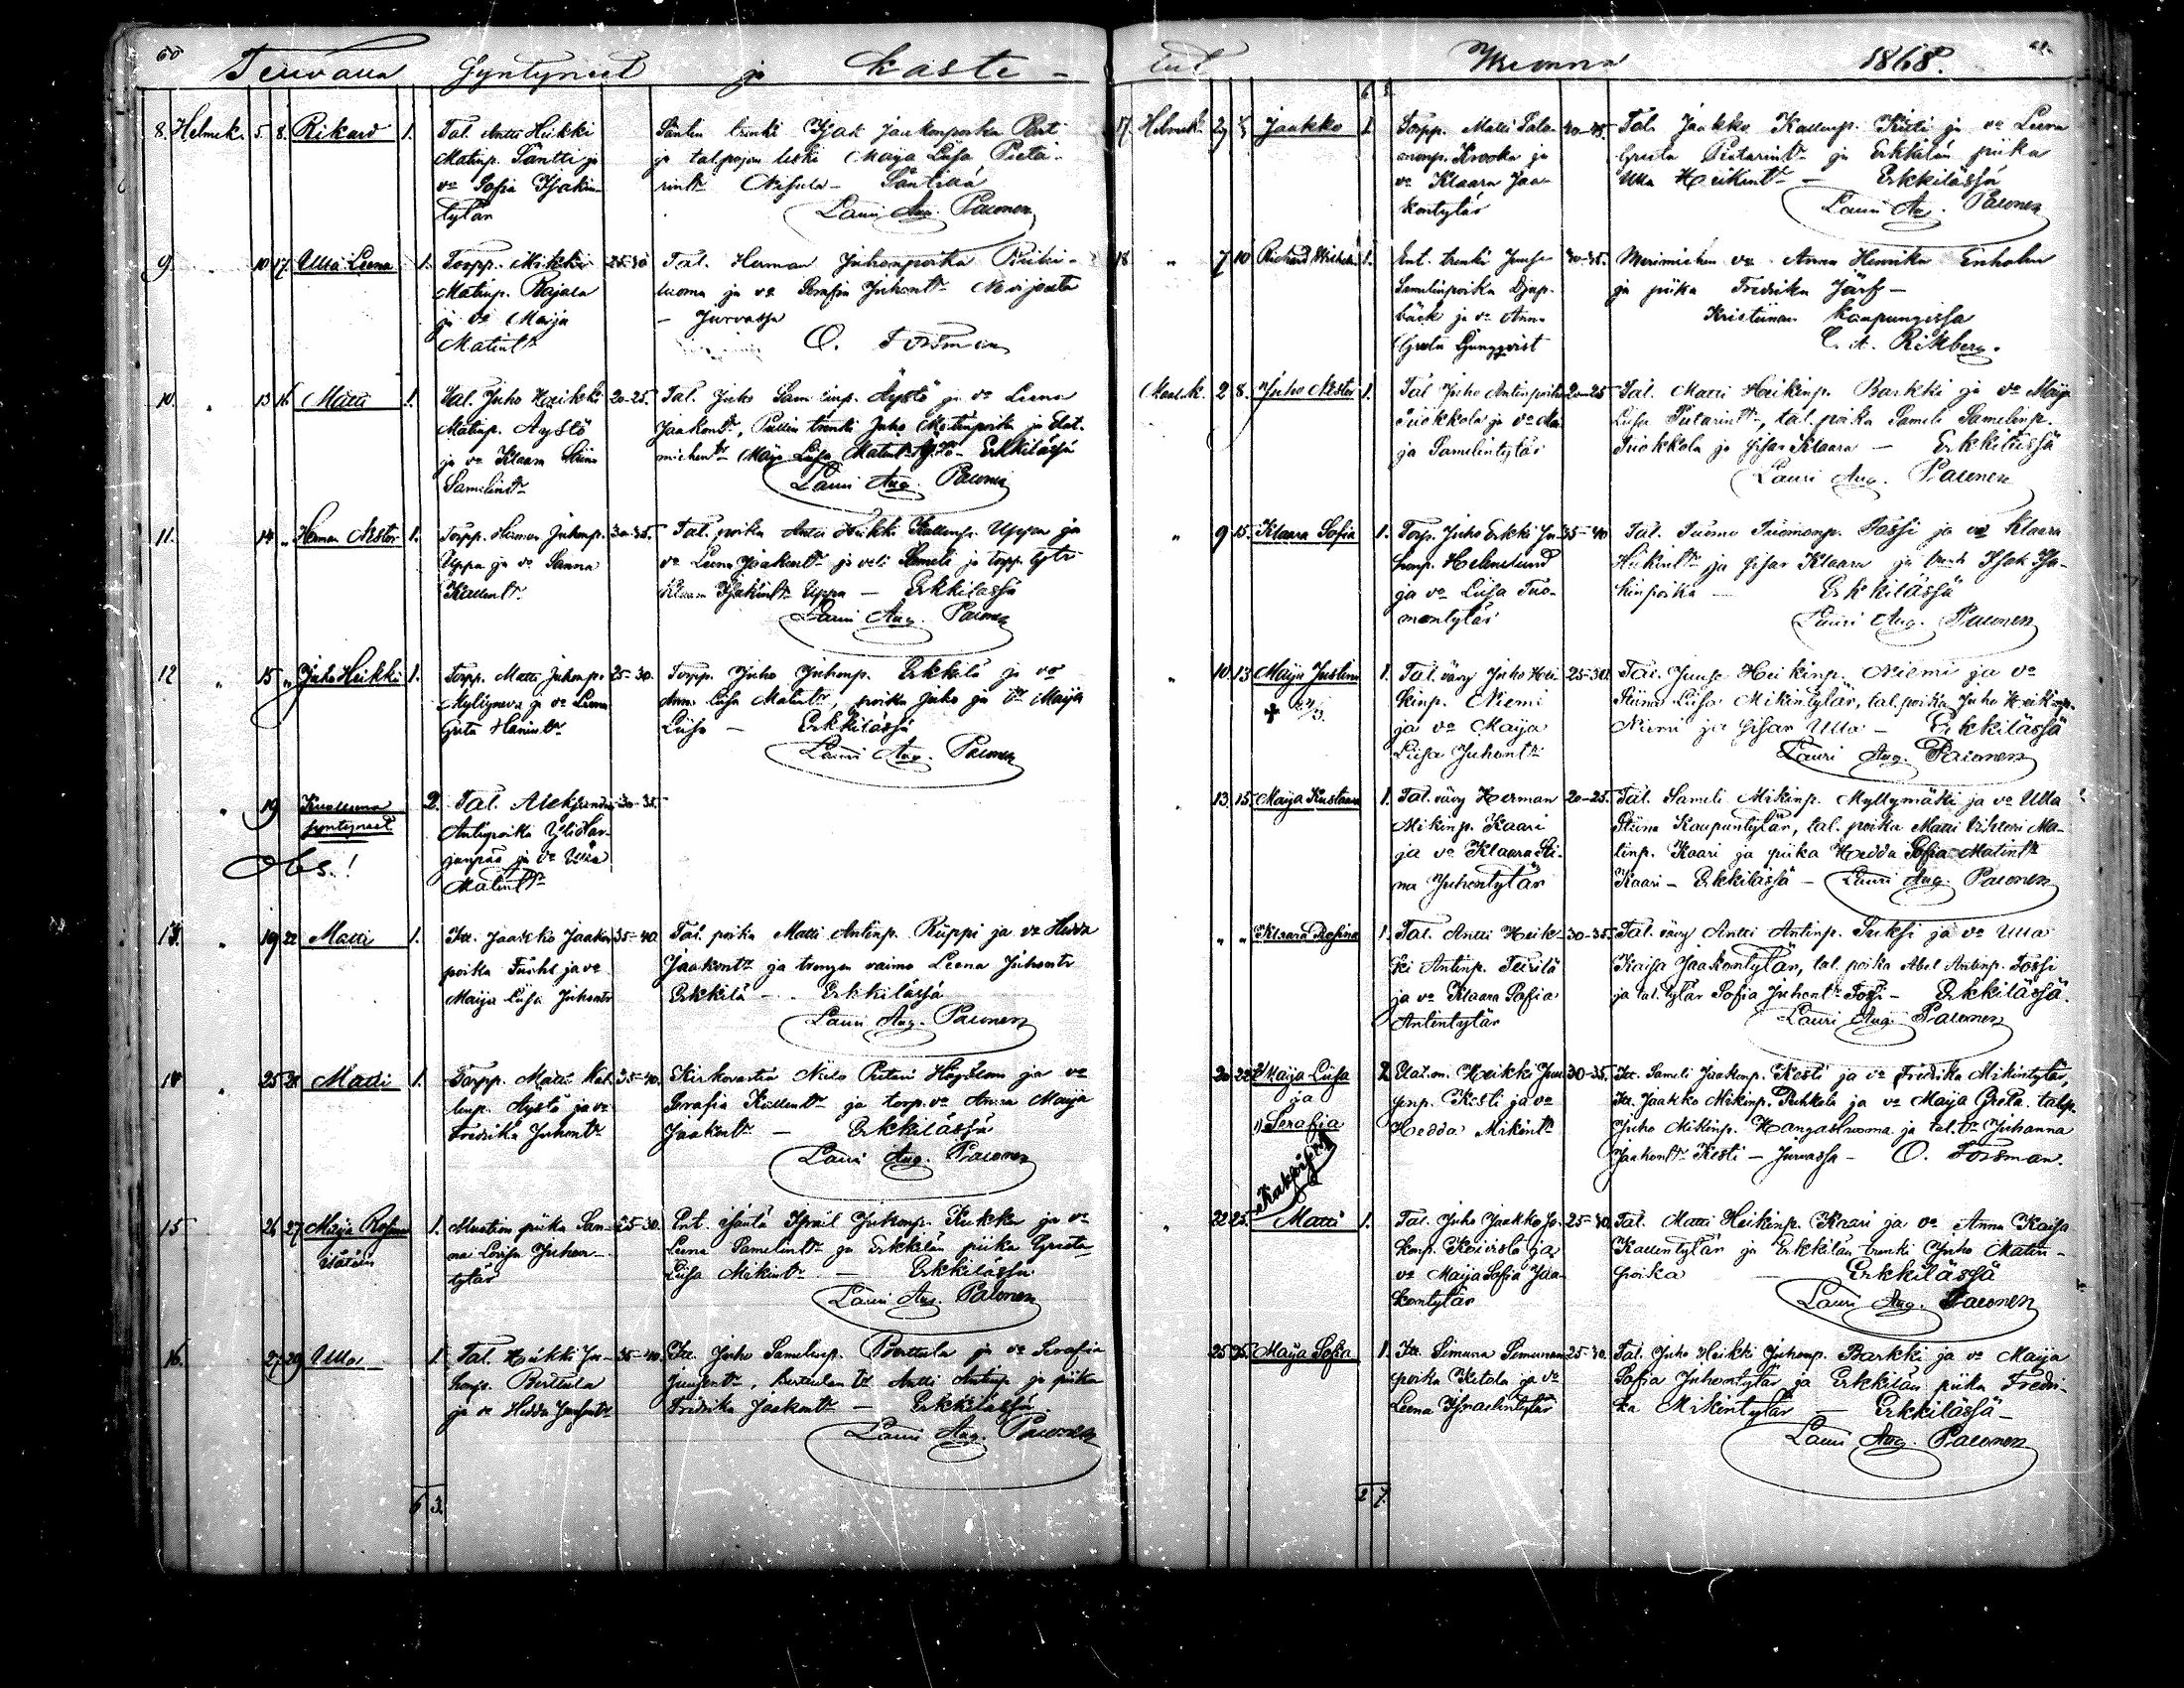 60
Teuvalla Syntyneet ja Kaste-
8. Helmik. 5. 8. Rikard 1. Tal. Antti Heikki
Matinp. Säntti ja
vo Sofia Isakin
tytär
Säntin trenki Isak Jaakonpoika Perti
ja talpojan leski Maija Liisa Pietä-
rintr Säntillä
Lauri Aug. Paconen
9. 10 17. Ulla Leena 1. Torpp. Mikki 25-30
Matinp. Rajala
ja vo Maija
Matintr
Tal. Herman Juhonpoika
luoma ja vo Serafia Juhontr
- Jurvassa
O. Forsman
10. 13 16. Matti 1. Tal. Juho Heikki 20-25.
Matinp. Äystö
ja vo Klaara Stiina
Samelintr
Tal. Juho Samelinp. Äystö ja vo Leena
Jaakontr, trenki Juho Matinpoika ja
Maija Liisa Matintr Erkkilässä
Lauri Aug. Paconen
11. 14 " Herman Nestor 1. Torpp. Herman Juhonp. 30-35.
Uppa ja vo Sanna
Kallentr
Tal. poika Antti Heikki Kallenp. Uppa ja
vo Leena Jaakontr ja veli Sameli ja torpp. tytr
Klaara Isakintr Uppa - Erkkilässä
Lauri Aug. Paconen
12 15 " Juho Heikki 1. Torpp. Matti Juhonp. 25-30.
ja vo Leena
Greta
Torpp. Juho Juhonp. Erkkilä ja vo
Anna Liisa Matintr, poika Juho ja vo Maija
Liisa - Erkkilässä
Lauri Aug. Paconen
19 Kuolleena
syntyneet
Obs.!
2. Tal. Aleksander 30-35.
Antinpoika Yli Har-
janpää ja vo Ulla
Matintr
13. 19 22 Matti 1. Itt. Jaakko Jaakon 35-40.
poika ja vo
Maija Liisa Juhontr
Tal. poika Matti Antinp. Riippi ja vo Hedda
Jaakontr ja trengin vaimo Leena Juhontr
Erkkilä - Erkkilässä
Lauri Aug. Paconen
14 25 28. Matti 1. Torpp. Matti Mat- 35-40.
tinp. Äystö ja vo
Fredrika Juhontr
Kirkovartia Nielo Pietari Högblom ja vo
Serafia Kallentr ja torp. vo Anna Maija
Jaakontr - Erkkilässä
Lauri Aug. Paconen
15 26 27 Maija Rosina 1. piika San- 25-30.
isätöin
na Lovisa Juhon-
tytär
Ent. isäntä Israil Juhonp. Kukka ja vo
Leena Samelintr ja Erkkilän piika Greta
Liisa Mikintr - Erkkilässä
Lauri Aug. Paconen
16. 27 29 Ulla 1. Tal. Heikki Ju- 35-40.
honp. Berttula
ja vo Hedda
Itt. Juho Samelinp. Berttula ja vo Serafia
Berttulan tr Antti Antinp. ja piika
Fredrika Jaakontr - Erkkilässä.
Lauri Aug. Paconen
6 3.
tut Wuonna 1868.
6 3.
17. Helmik. 29 Jaakko 1. Torpp. Matti Salo- 40-45.
monp. Krooka ja
vo Klaara Jaa-
kontytär
Tal. Jaakko Kallenp. ja vo Leena
Greta Pietarintr ja Erkkilän piika
Ulla Heikintr - Erkkilässä
Lauri Aug. Paconen
18 " 7 10 Richard Wilhelm 1. Ent. trenki Juuse 30-35.
Samelinpoika Djup-
bäck ja vo Anna
Greta Ljungqvist
Merimiehen vo Anna Henrika Enholm
ja piika Fredrika Järf -
Kristiinan kaupungissa
C. A. Rikberg.
Maalisk. 2 8. Juho Nestor 1. Tal. Juho Antinpoika 20-25
Tuokkola ja vo Ma-
ja Samelintytär
Tal. Matti Heikinp. Barkki ja vo Maija
Liisa Pietarintr, tal. poika Sameli Samelinp.
Tuokkola ja sisar Klaara - Erkkilässä
Lauri Aug. Paconen
" 9 15. Klaara Sofia 1. Torp. Juho Erkki Ju- 35-40
honp. Helmelund
ja vo Liisa Tuo-
montytär
Tal. Tuomo Tuomonp. Fossi ja vo Klaara
Heikintr ja sisar Klaara ja Isak Isa-
kinpoika - Erkkilässä
Lauri Aug. Paconen
" 10. 13 Maija Justina 1. Tal. vävy Juho Hei- 25-30.
kinp. Niemi
ja vo Maija
Liisa Juhontr
Tal. Juuse Heikinp. Niemi ja vo
Stiina Liisa Mikintytär, tal. poika Juho Heikinp.
Niemi ja sisar Ulla - Erkkilässä
Lauri Aug. Paconen
13. 15. Maija Kustaava 1. Tal. vävy Herman 20-25.
Mikinp. Kaari
ja vo Klaara Sti-
na Juhontytär
Tal. Sameli Mikinp. Myllymäki ja vo Ulla
Stiina Kaapuntytär, tal. poika Matti Vihtori Ma-
tinp. Kaari ja piika Hedda Sofia Matintr
Kaari - Erkkilässä - Lauri Aug. Paconen
" " Klaara Rosina 1. Tal. Antti Heik- 30-35.
ki Antinp. Teirilä
ja vo Klaara Sofia
Antintytär
Tal. vävy Antti Antinp. Suksi ja vo Ulla
Kaisa Jaakontytär, tal. poika Abel Antinp. Fossi
ja tal. tytär Sofia Juhontr Fossi - Erkkilässä.
Lauri Aug. Paconen
20 22 2) Maija Liisa
ja
1) Serafia
Kaksoiset
2. Heikki Juu- 30-35.
senp. Kesti ja vo
Hedda Mikintr
Itt. Sameli Jaakonp. Kesti ja vo Fredrika Mikintytär,
Itt. Jaakko Mikinp. Puhkala ja vo Maija Greta, talp.
Juho Mikinp. Hangasluoma ja tal. tr Juhanna
Jaakontr Kesti - Jurvassa - O. Forsman.
" 22 25. Matti 1. Tal. Juho Jaakko Ja- 25-30.
konp. Koivisto ja
vo Maija Sofia Jaa-
kontytär
Tal. Matti Heikinp. Kaari ja vo Anna Kaisa
Kallentytär ja Erkkilän trenki Juho Matin-
poika - Erkkilässä
Lauri Aug. Paconen
25 25. Maija Sofia 1. Itt. Simuna Simunan 25-30.
poika Ketola ja vo
Leena Israelintytär
Tal. Juho Heikki Juhonp. Barkki ja vo Maija
Sofia Juhontytär ja Erkkilän piika Fredri-
ka Mikintytär - Erkkilässä -
Lauri Aug. Paconen
2 7.